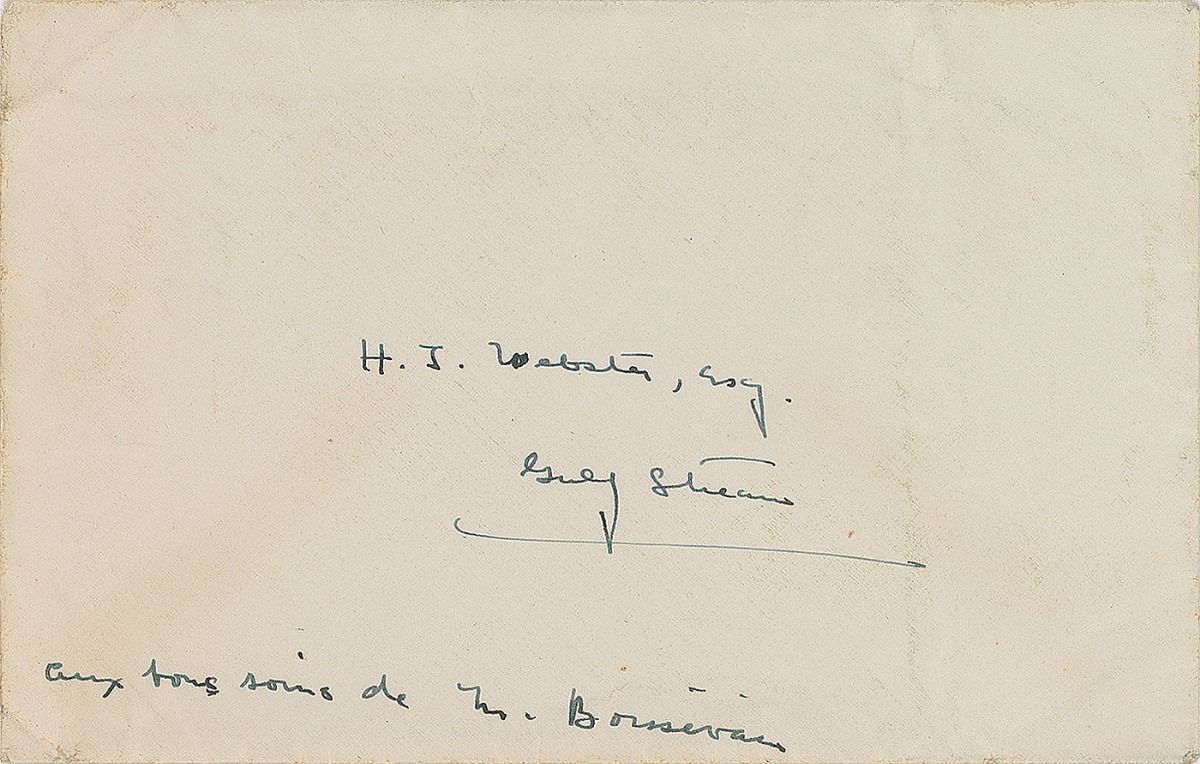 H. J. Webster, Esq.
Gulf Stream
aux bons soins de M. Boissevain